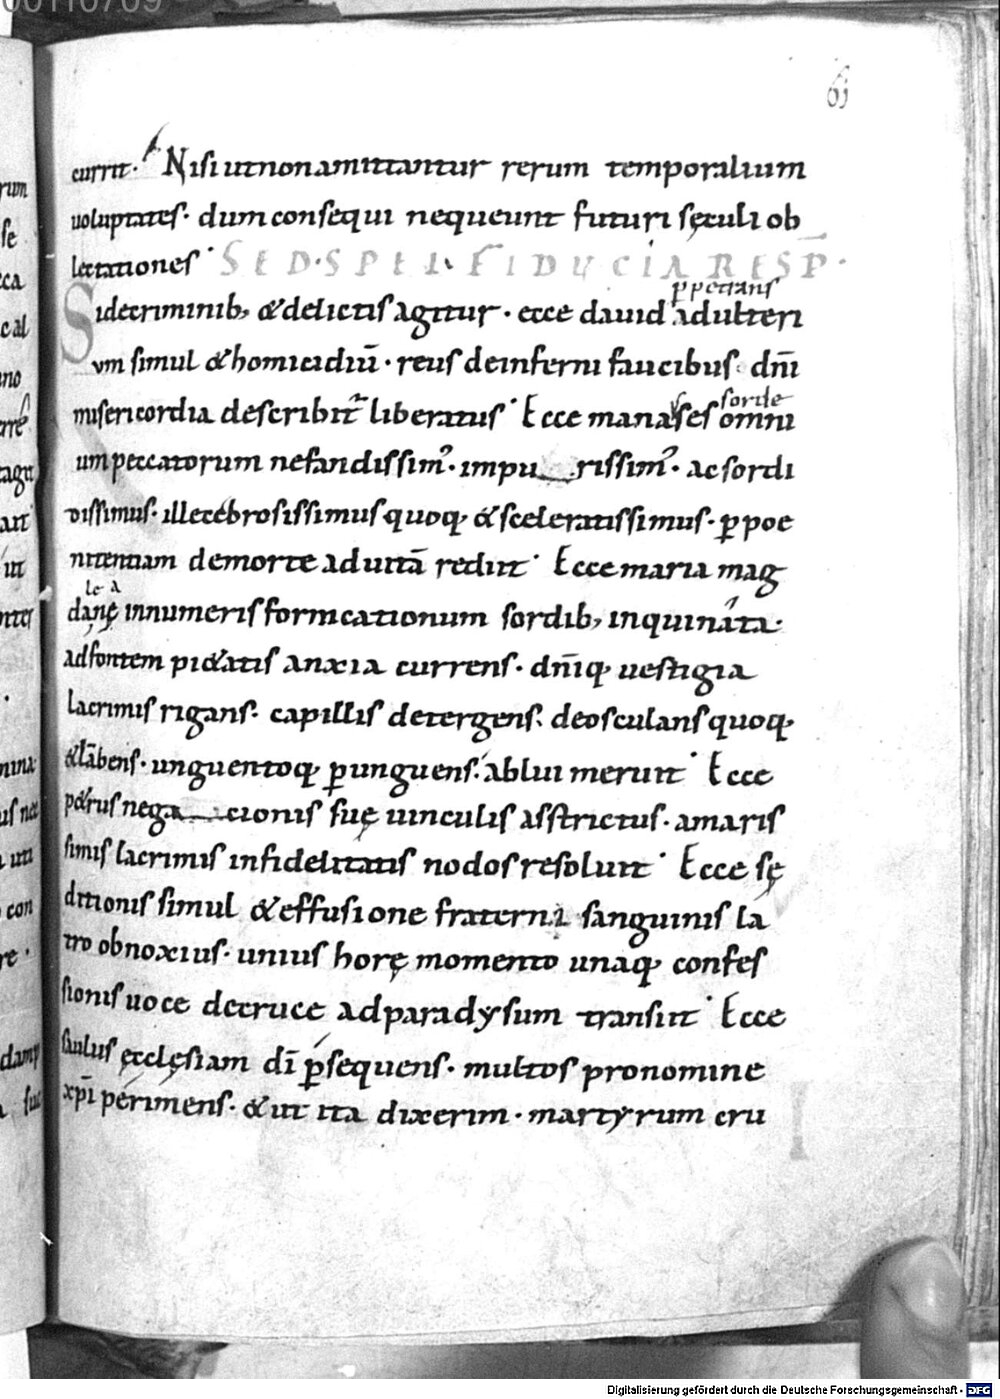 61
currit· Nisi ut non amittantur rerum temporalium
uoluptates· dum consequi nequeunt futuri sęculi ob
lectationes· SED·SPEI· FIDUCIA RESP̄·
p̱petrans
Si de criminib; & delictis agitur· ecce dauid adulteri
vm simul & homicidiū· reus de inferni faucibus· dn̄i
sorde
misericordia describit̄ liberatus· Ecce manasses omni
um peccatorum nefandissim᾽· impu rissim᾽· ac sordi
dissimus· illecebrosissimus quoq; & sceleratissimus· p̱ poe
nitentiam de morte ad uitā rediit· Ecce maria mag
le a
danę innumeris fornicationum sordib; inquinata·
ad fontem pi&atis anxia currens· dn̄iq; uestigia
lacrimis rigans· capillis detergens· deosculans quoq;
& lābens· unguentoq; p̱unguens· ablui meruit· Ecce
p&rus nega cionis suę uinculis asstrictus· amaris
simis lacrimis infidelitatis nodos resoluit· Ecce sę
ditionis simul & effusione fraterni sanguinis la
tro obnoxius· unius horę momento unaq; confes
sionis uoce de cruce ad paradysum transiit· Ecce
saulus ęcclęsiam dī p̱sequens· multos pro nomine
xp̄i perimens· & ut ita dixerim· martyrum cru
Digitalisierung gefördert durch die Deutsche Forschungsgemeinschaft - DFG